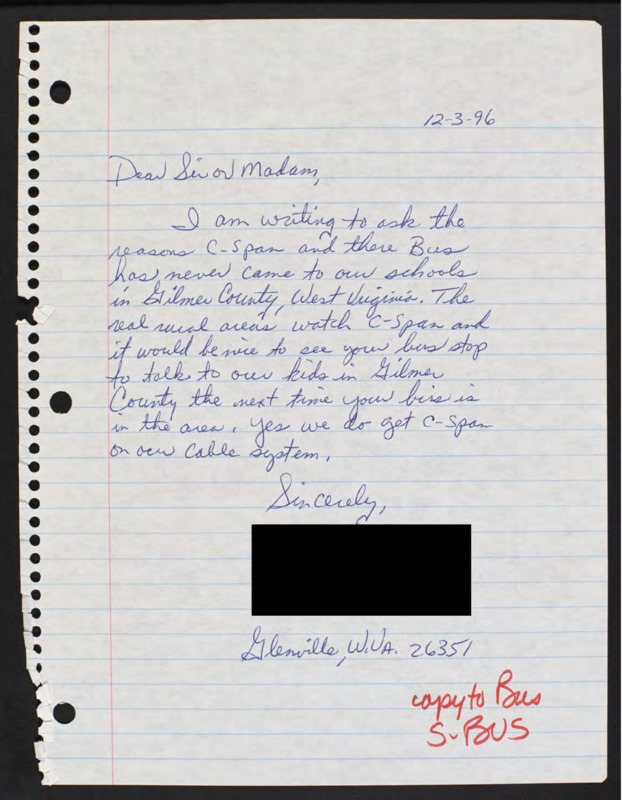 12-3-96
Dear Sir or Madam,
I am writing to ask the
reasons C-Span and there Bus
has never came to our schools
in Gilmer County, West Virginia. The
real rural areas watch C-Span and
it would be nice to see your bus stop
to talk to our kids in Gilmer
County the next time your bus is
in the area. Yes we do get C-Span
on our Cable system.
Sincerely,
Glenville, W.VA. 26351
copy to Bus
S-BUS